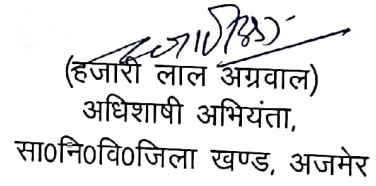 (हजारी लाल अग्रवाल)
अधिशाषी अभियंता,
सा0नि0वि0जिला खण्ड, अजमेर